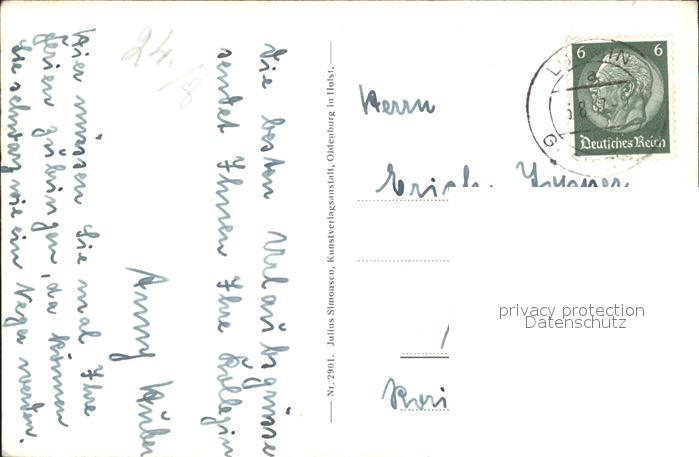 Die besten Urlaubsgrüsse
sendet Ihnen Ihre Collegin
Anny Huber
Hier müssen Sie mal Ihre
Ferien zubringen, da können
Sie schwarz wie ein Neger werden.
24./8
Nr. 2901. Julius Simonsen, Kunstverlagsanstalt, Oldenburg in Holst.
Herrn
Erich
6 6
Deutsches Reich
privacy protection
Datenschutz